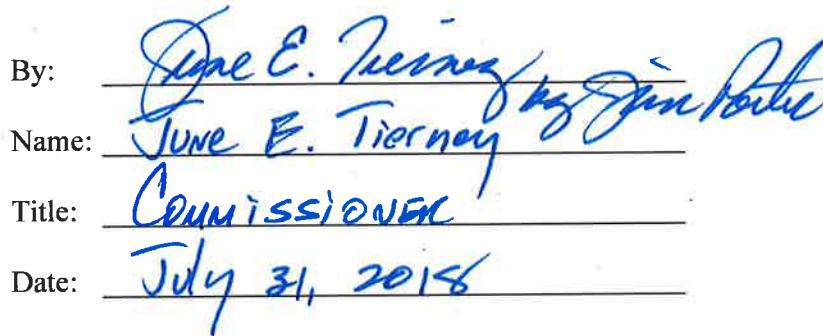 By: June E. Tierney by Jim Porter
Name: June E. Tierney
Title: Commissioner
Date: July 31, 2018